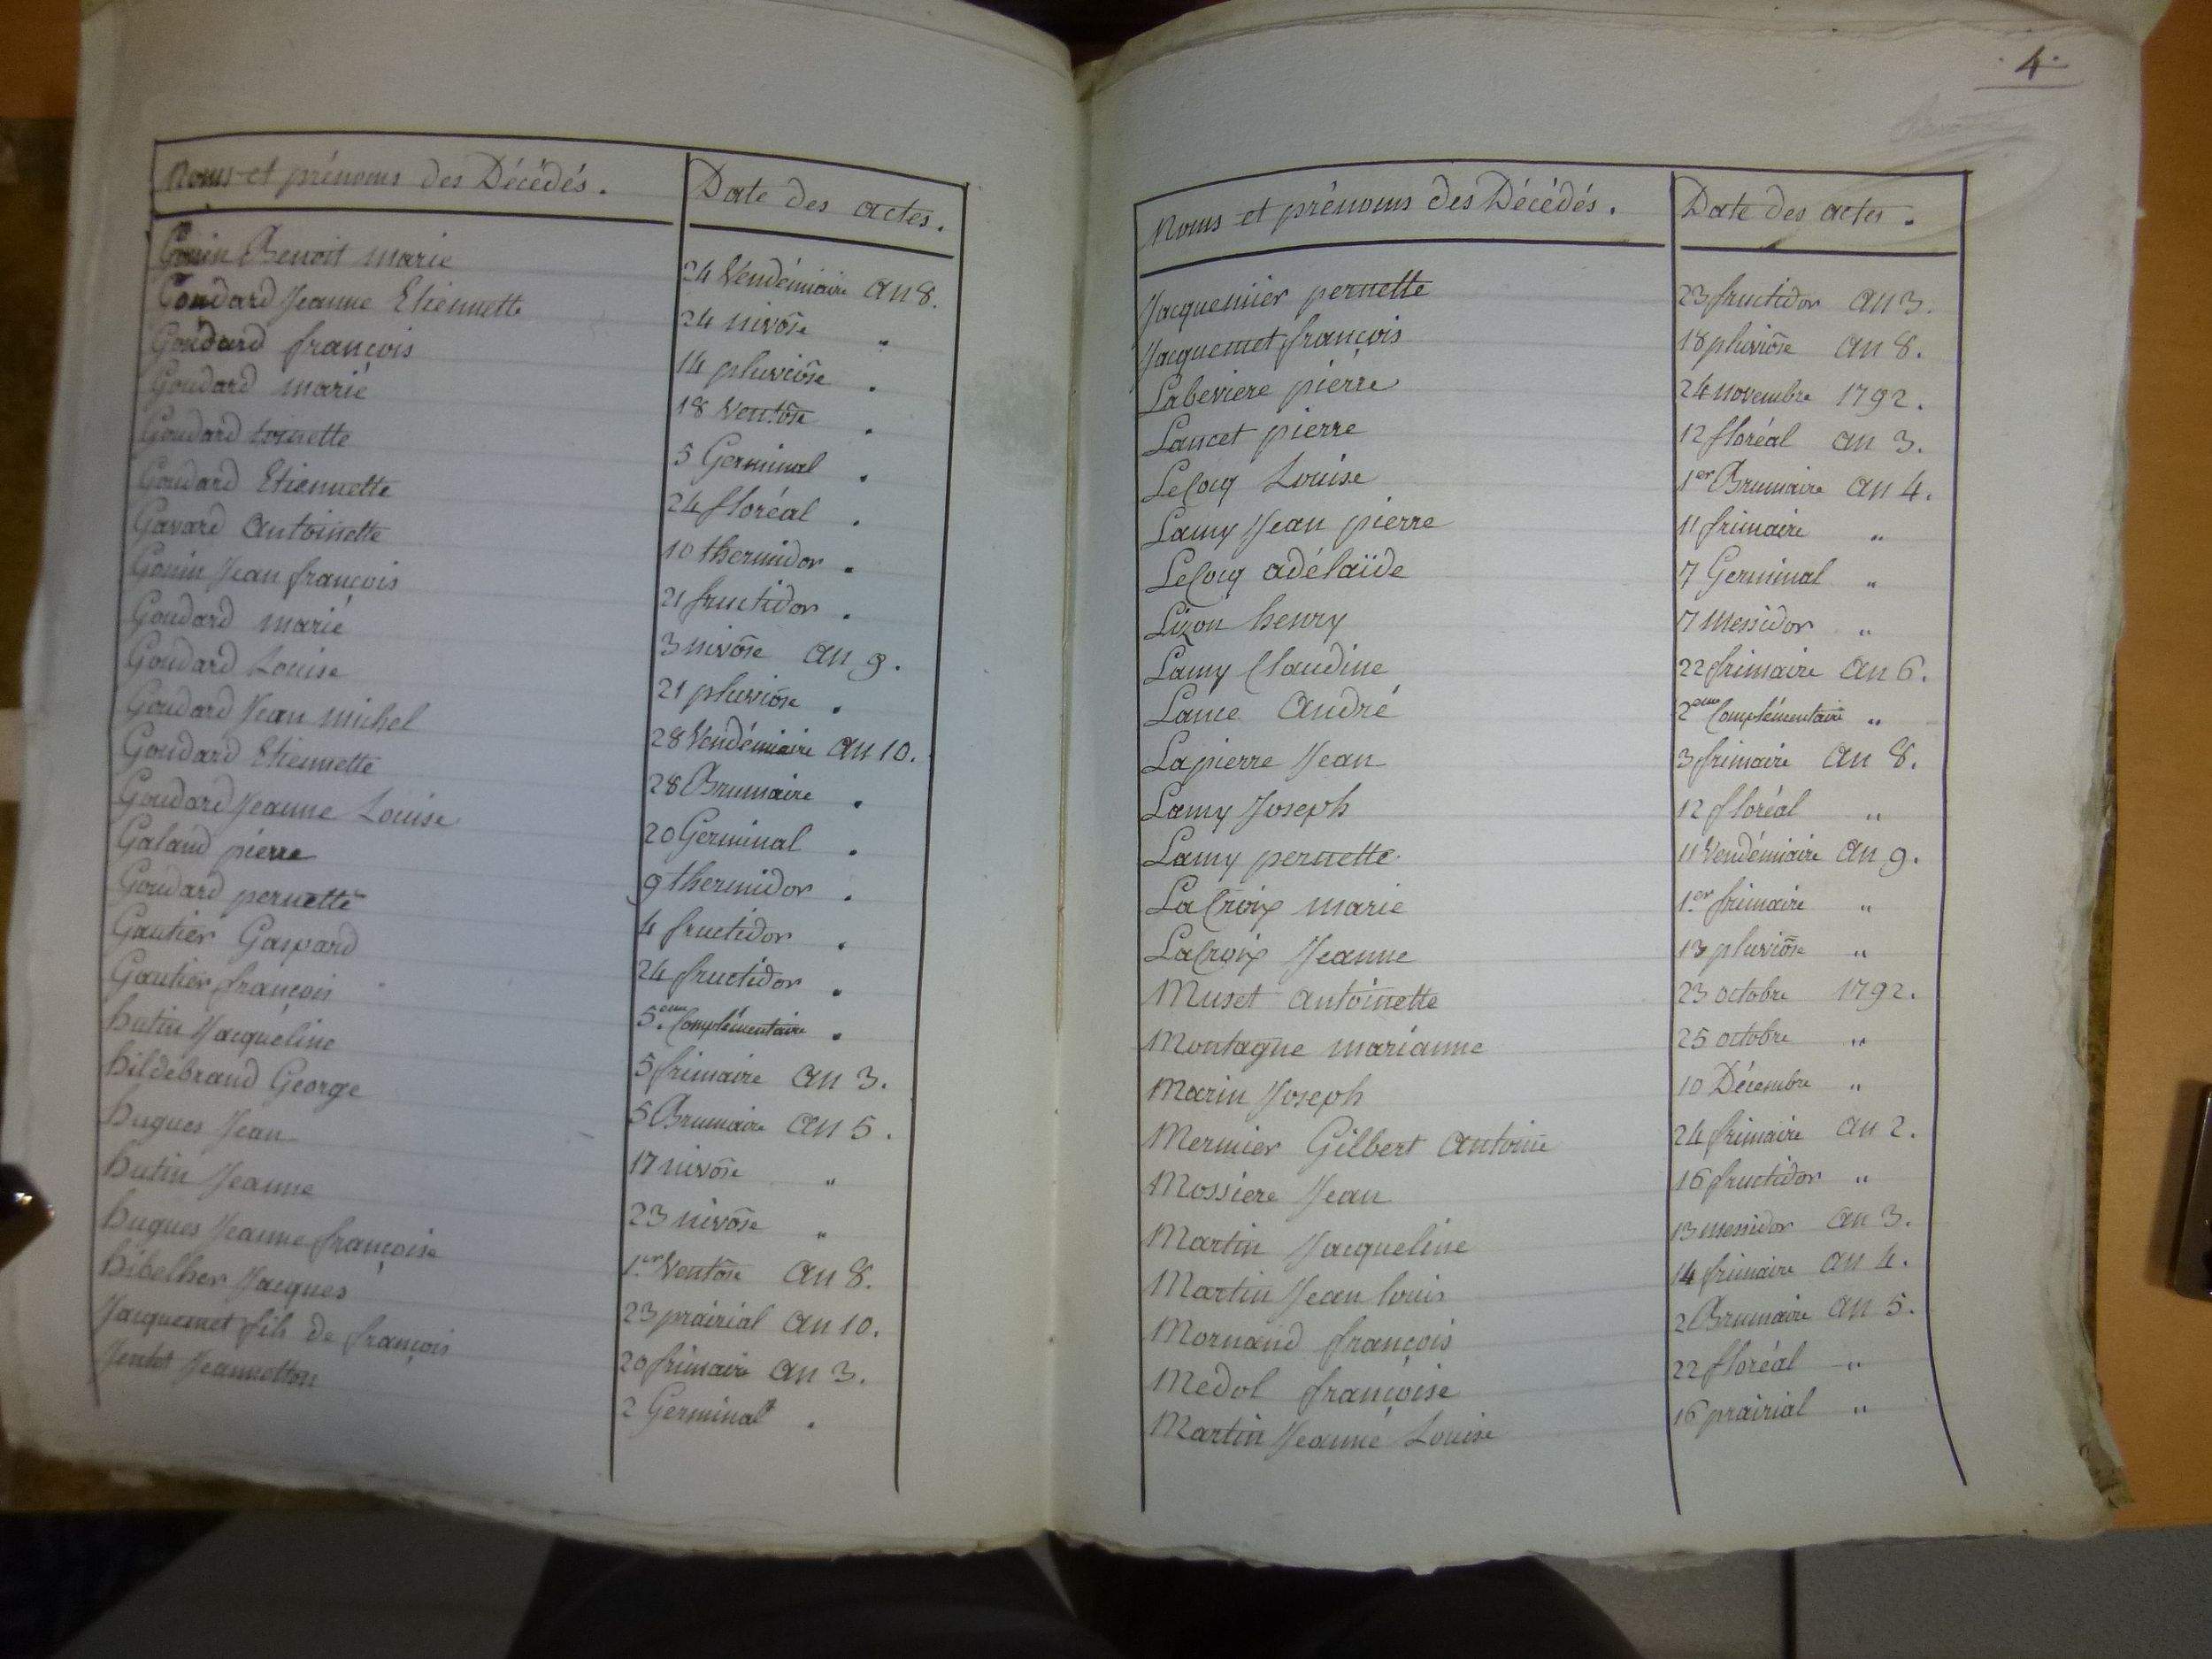 Noms et prénoms des Décédés. Date des actes.
Gonin Benoit marie 24 Vendémiaire an 8.
Goudard Jeanne Etiennette 24 nivôse "
Goudard françois 14 pluviôse "
Goudard marie 18 Ventôse "
Goudard tonnette 5 Germinal "
Goudard Etiennette 24 floréal "
Gavard antoinette 10 thermidor "
Gonin Jean françois 21 fructidor "
Goudard marie 3 nivôse an 9.
Goudard Louise 21 pluviôse "
Goudard Jean michel 28 Vendémiaire an 10.
Goudard Etiennette 28 Brumaire "
Goudard Jeanne Louise 20 Germinal "
Galand pierre 9 thermidor "
Goudard pernette 4 fructidor "
Gautier Gaspard 24 fructidor "
Gautier françois 5.eme Complémentaire "
hutin Jacqueline 5 frimaire an 3.
hildebrand George 5 Brumaire an 5.
hugues Jean 17 nivôse "
hutin Jeanne 23 nivôse "
hugues Jeanne françoise 1.er Ventôse an 8.
hibelher Jacques 23 prairial an 10.
Jacquemet fils de françois 20 frimaire an 3.
Jentet Jeannetton 2 Germinal "
4.
Noms et prénoms des Décédés. Date des actes.
Jacquemier pernette 23 fructidor an 3.
Jacquemet françois 18 pluviôse an 8.
Labeviere pierre 24 novembre 1792.
Lancet pierre 12 floréal an 3.
LeCocq Louise 1er Brumaire an 4.
Lamy Jean pierre 11 frimaire "
LeCocq adélaïde 7 Germinal "
Lizon henry 7 Messidor "
Lamy Claudine 22 frimaire an 6.
Lance André 2eme Complémentaire "
Lapierre Jean 3 frimaire an 8.
Lamy Joseph 12 floréal "
Lamy pernette 11 Vendémiaire an 9.
LaCroix marie 1.er frimaire "
LaCroix Jeanne 13 pluviôse "
Muset antoinette 23 octobre 1792.
Montagne marianne 25 octobre "
Marin Joseph 10 Décembre "
Mermier Gilbert antoine 24 frimaire an 2.
Mossiere Jean 16 fructidor "
Martin Jacqueline 13 messidor an 3.
Martin Jean louis 14 frimaire an 4.
Mornand françois 2 Brumaire an 5.
Medol françoise 22 floréal "
Martin Jeanne Louise 16 prairial "